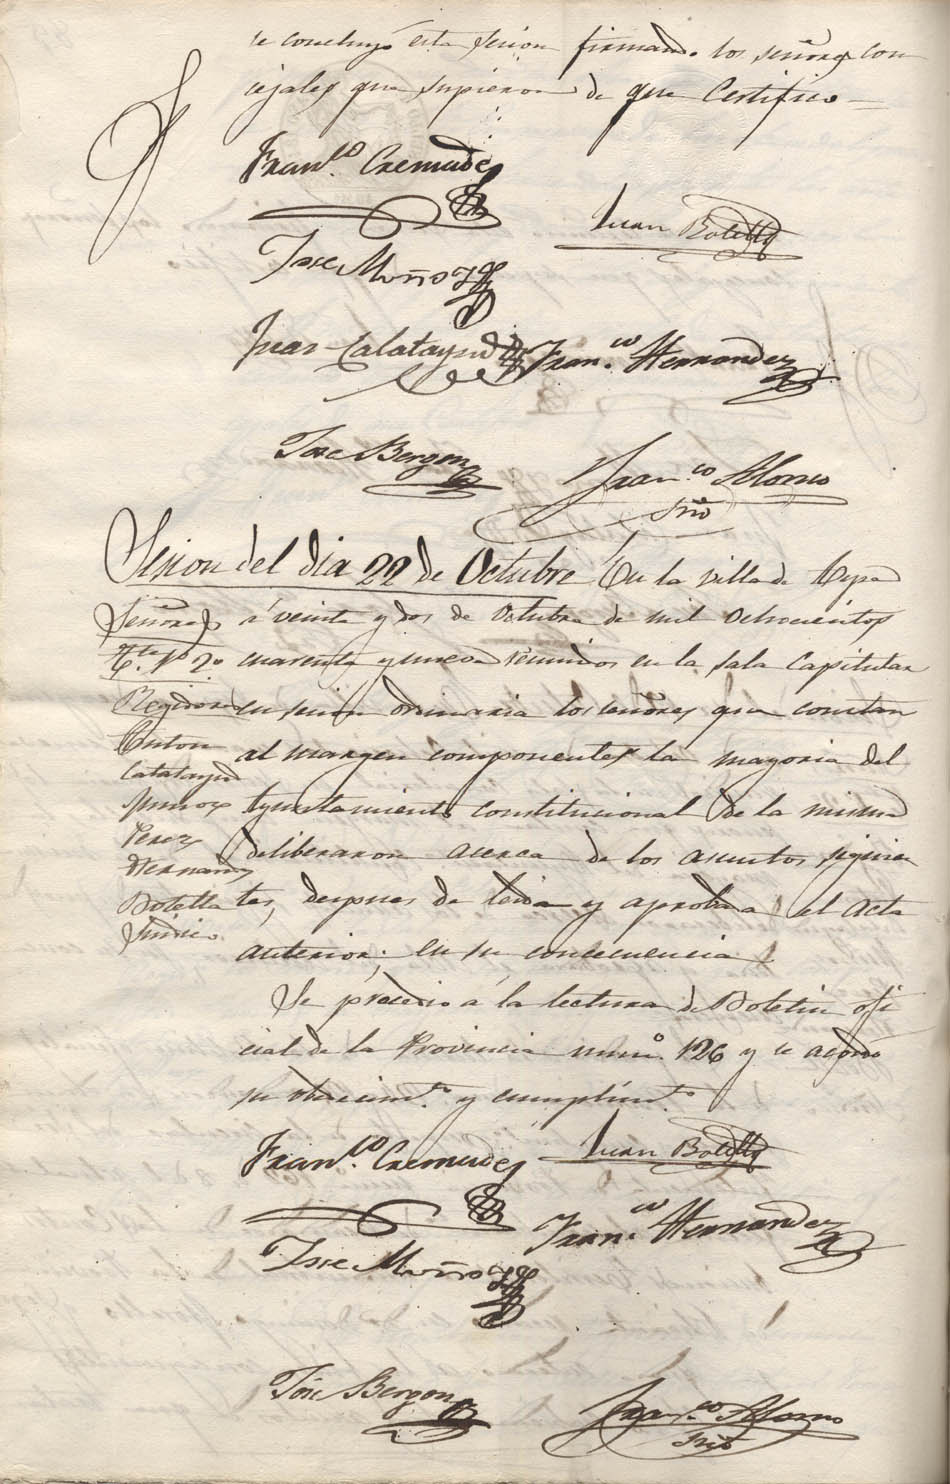 se concluyó esta sesion firmando los señores con
cejales que supieron de que Certifico
Fran.co Cremades
Juan Botella
Jose Muñoz
Juan Calatayud
Fran.co Hernandez
Jose Bergon
Fran.co Alonso
Srio
Sesion del dia 22 de Octubre En la villa de Elgea
á veinte y dos de Octubre de mil ochocientos
cuarenta y nueve reunidos en la sala Capitular
en sesion ordinaria los señores que constan
al margen componentes la mayoria del
Ayuntamiento constitucional de la misma
deliberaron acerca de los asuntos siguien
tes, despues de leida y aprobada el acta
anterior; en su consecuencia
Señores
Tte. 1º 2º
Regidores
Anton
Calatayud
Munoz
Perez
Hernandez
Botella
Sindico
Se procedio á la lectura de Boletin ofi
cial de la Provincia num.o 126 y se acordó
su obecim.to y cumplim.to
Fran.co Cremades
Juan Botella
Fran.co Hernandez
Jose Muñoz
Jose Bergon
Fran.co Alonso
Srio